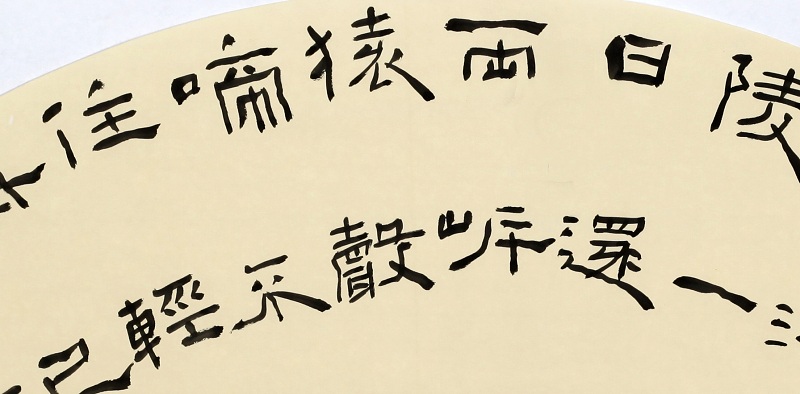 陵一
日還
兩岸
猿聲
啼不
住輕
已